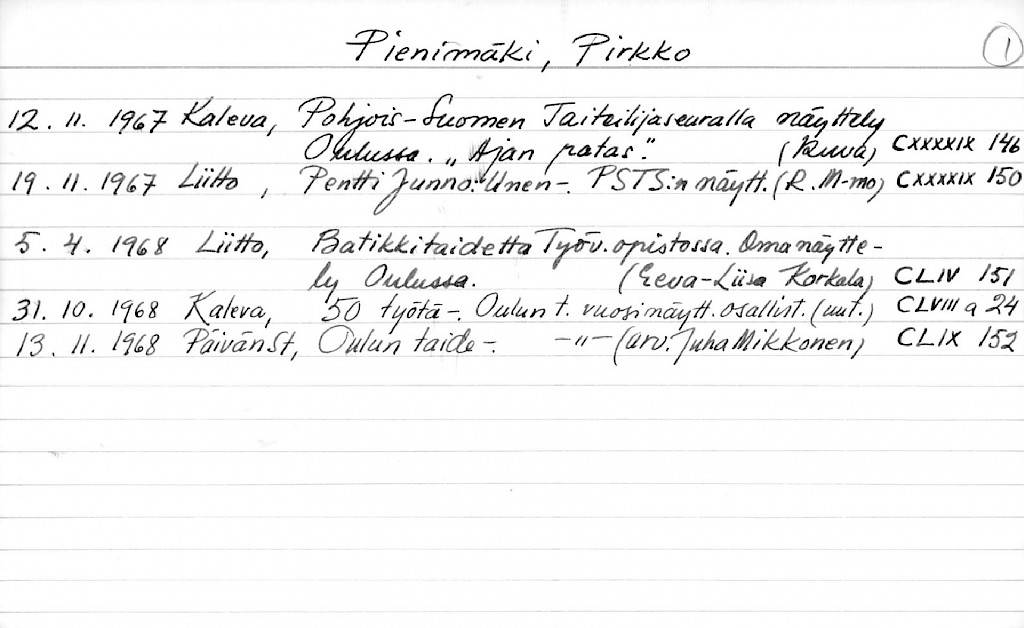 Pienimäki, Pirkko 1
12. 11. 1967 Kaleva, Pohjois-Suomen Taiteilijaseuralla näyttely
Oulussa. „Ajan patas". (Kuva) CXXXXIX 146
19. 11. 1967 Liitto, Pentti Junno: Unen-. PSTS:n näytt. (R. M-mo) CXXXXIX 150
5. 4. 1968 Liitto, Batikkitaidetta Työv. opistossa. Oma näytte-
ly Oulussa. (Eeva-Liisa Korkala) CLIV 151
31. 10. 1968 Kaleva, 50 työtä-. Oulun t. vuosinäytt. osallist. (uut.) CLVIII a 24
13. 11. 1968 PäivänSt, Oulun taide-. -„- (arv. Juha Mikkonen) CLIX 152